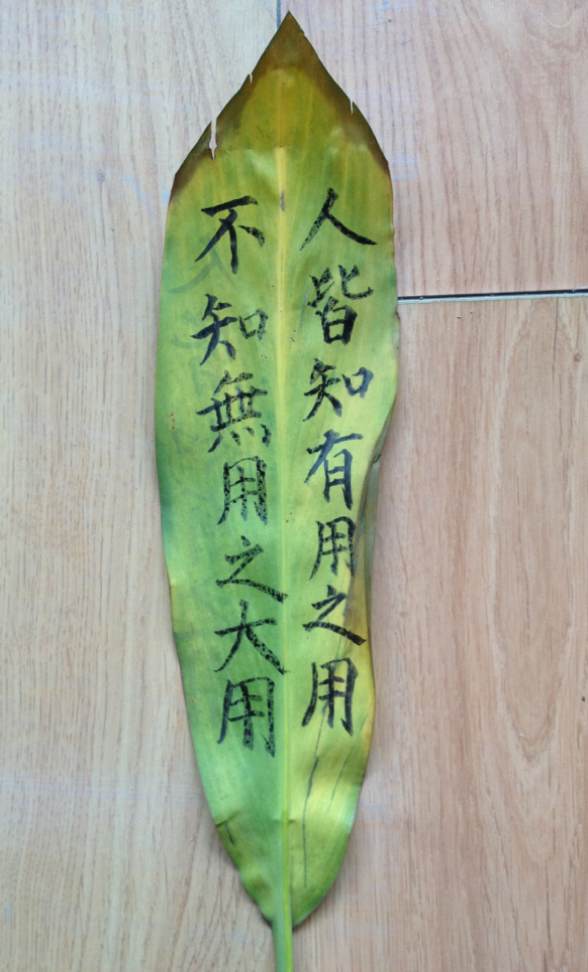 人皆知有用之用
不知無用之大用